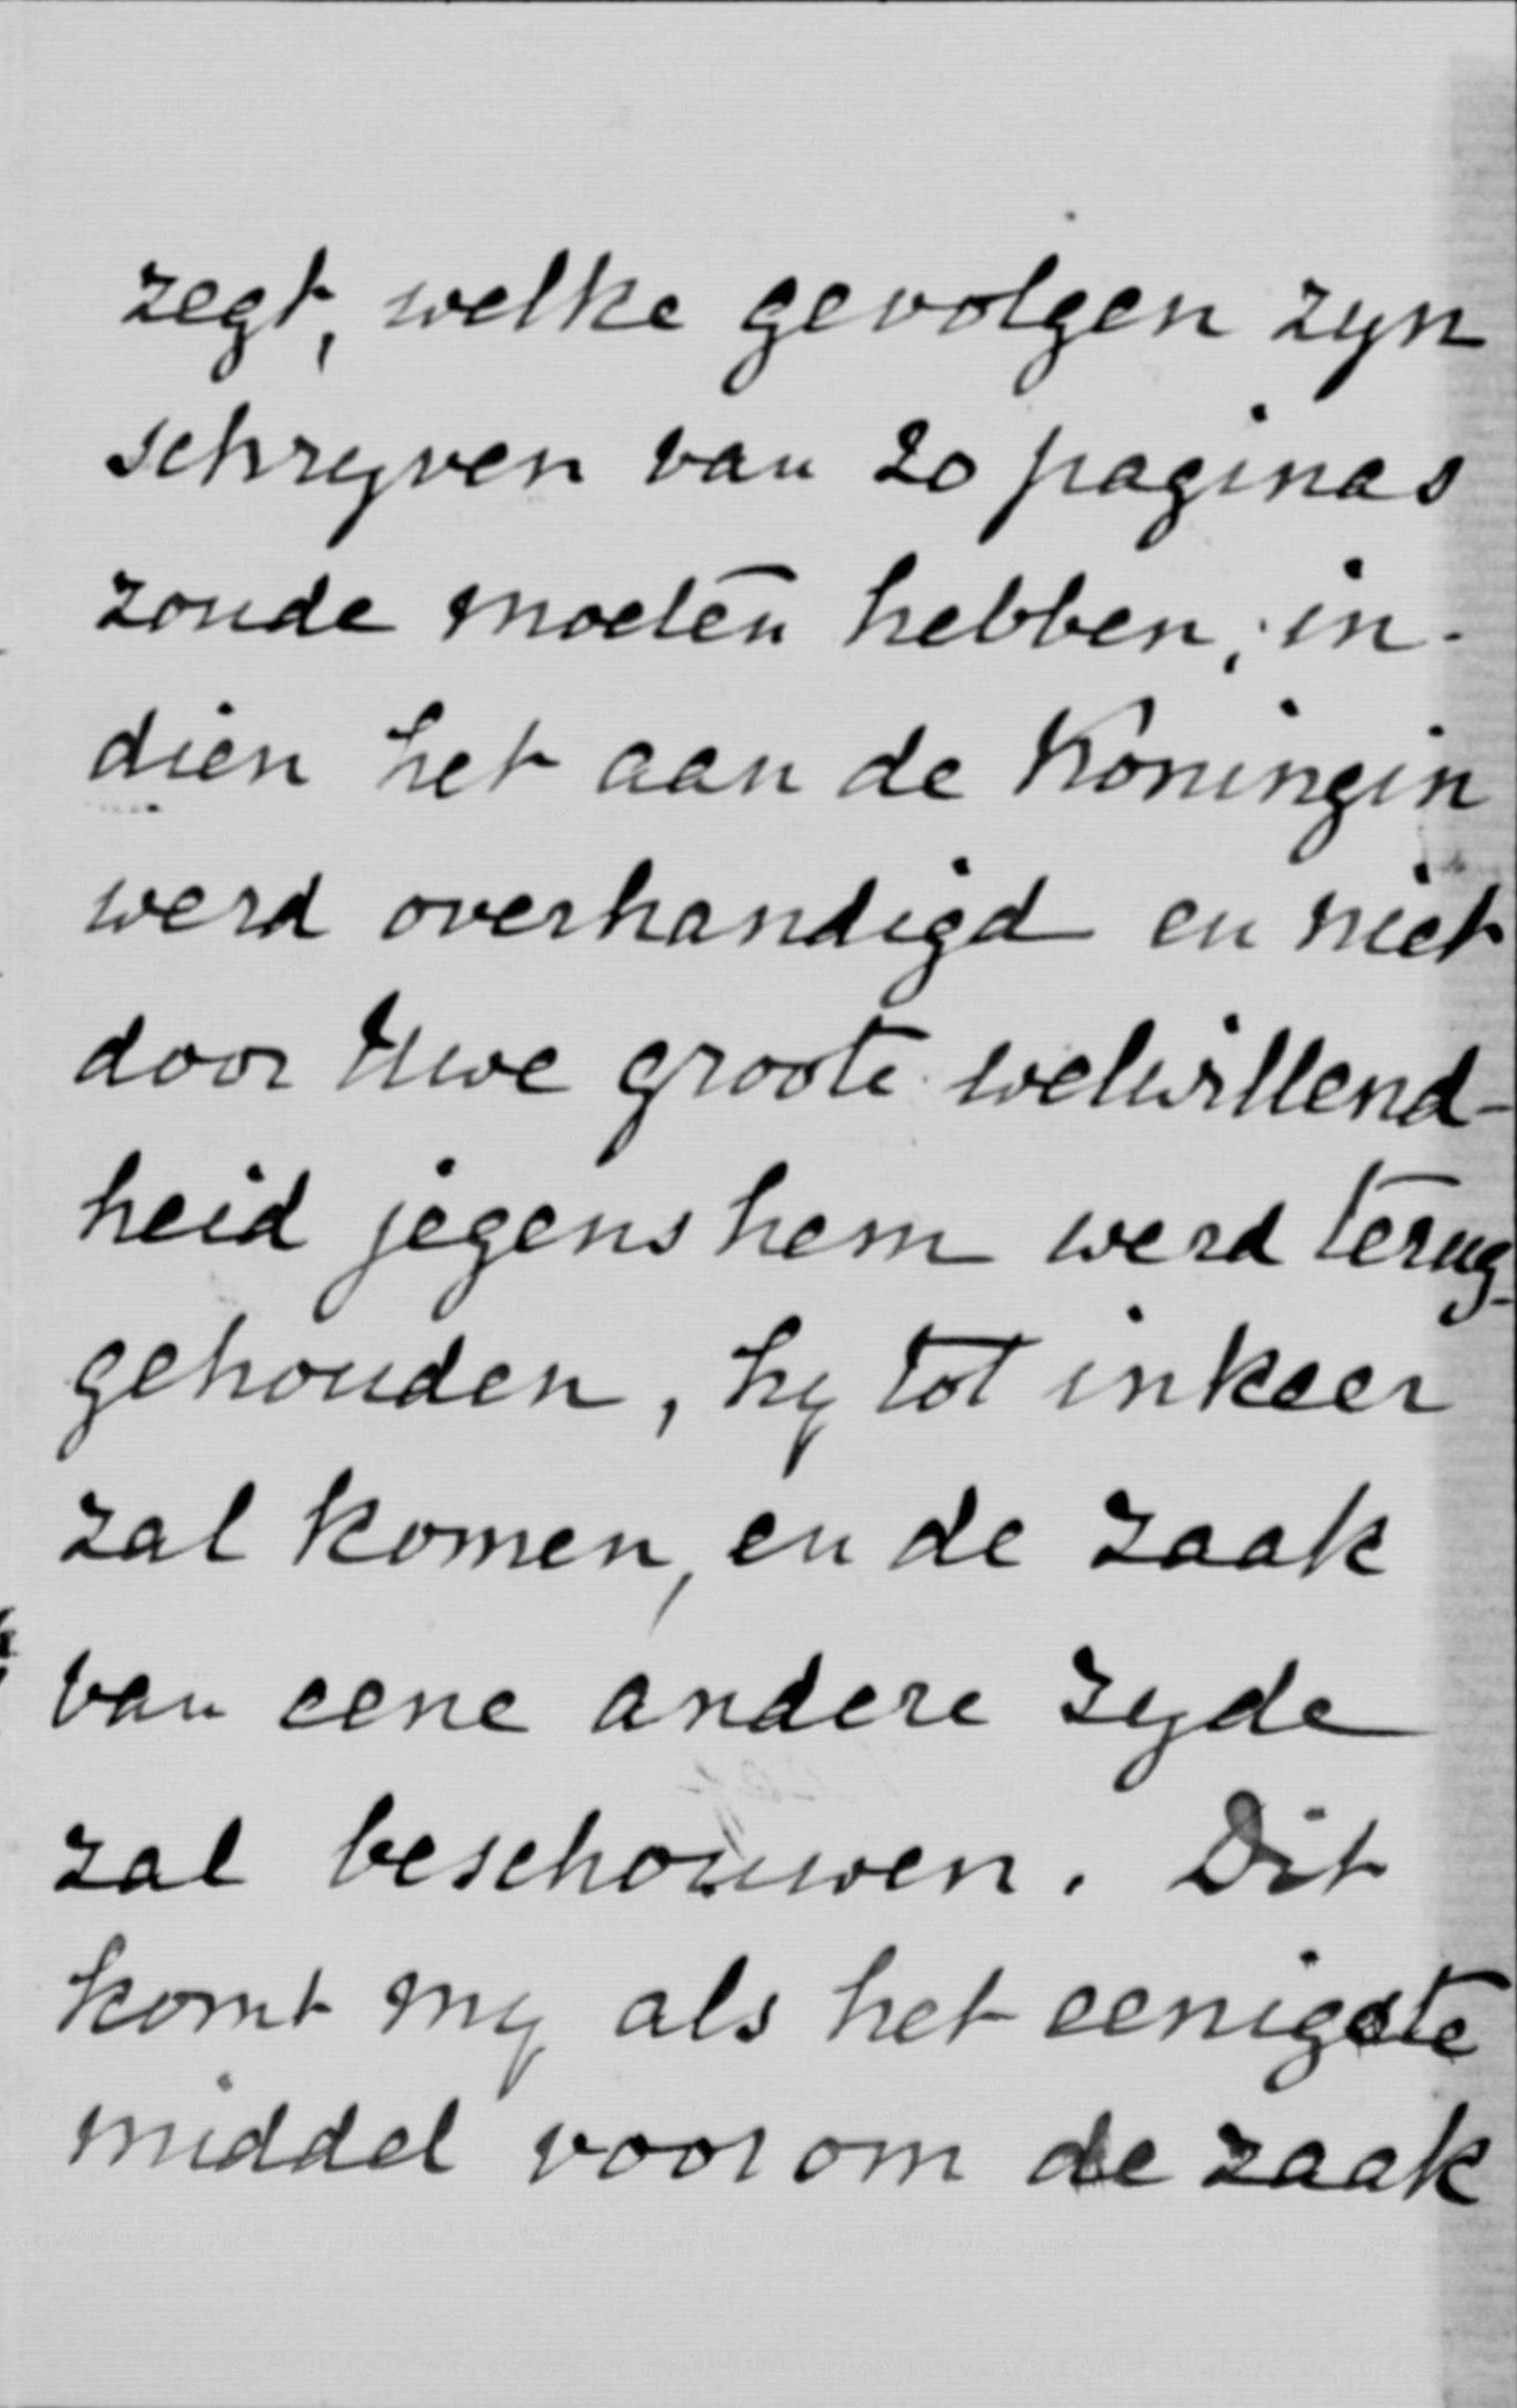 zegt, welke gevolgen zyn
schryven van 20 paginas
zoude moeten hebben, in-
dien het aan de Koningin
werd overhandigd en niet
door Uwe groote welwillend-
heid jegens hem werd terug-
gehouden, hy tot inkeer
zal komen, en de zaak
van eene andere zyde
zal beschouwen. Dit
komt my als het eenigste
middel voor om de zaak